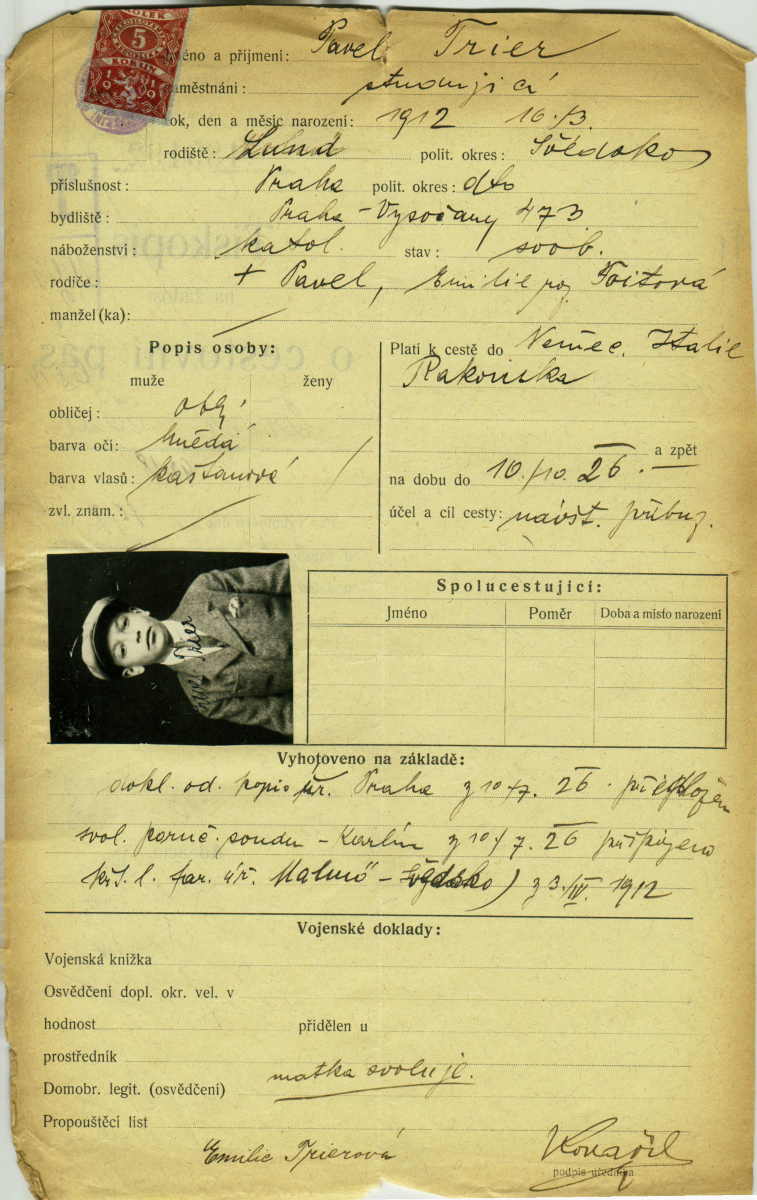 KOLEK
5
KORUN
Jméno a příjmení: Pavel Trier
zaměstnání: studující
rok, den a měsíc narození: 1912 16./3.
rodiště: Lund polit. okres: Švédsko
příslušnost: Praha polit. okres: dto
bydliště: Praha - Vysočany 473
náboženství: katol. stav: svob.
rodiče: + Pavel, Emilie roz. Foitová
manžel (ka):
Popis osoby:
muže ženy
obličej: oblý
barva očí: hnědá
barva vlasů: kaštanová
zvl. znam.:
Platí k cestě do Němec. Italie
Rakouska
a zpět
na dobu do 10./10. 26.
účel a cíl cesty: návšt. příbuz.
Trier
Spolucestující:
Jméno Poměr Doba a místo narození
Vyhotoveno na základě:
dokl. od. popis Praha z 10/7. 26
svol. poruč. soudu - Karlín z 10/7. 26
křt. l. far. úř. Malmö - z 3./IV. 1912
Vojenské doklady:
Vojenská knížka
Osvědčení dopl. okr. vel. v
hodnost přidělen u
prostředník
Domobr. legit. (osvědčení) matka svoluje.
Propouštěcí list
Emilie Trierová
podpis úředníka